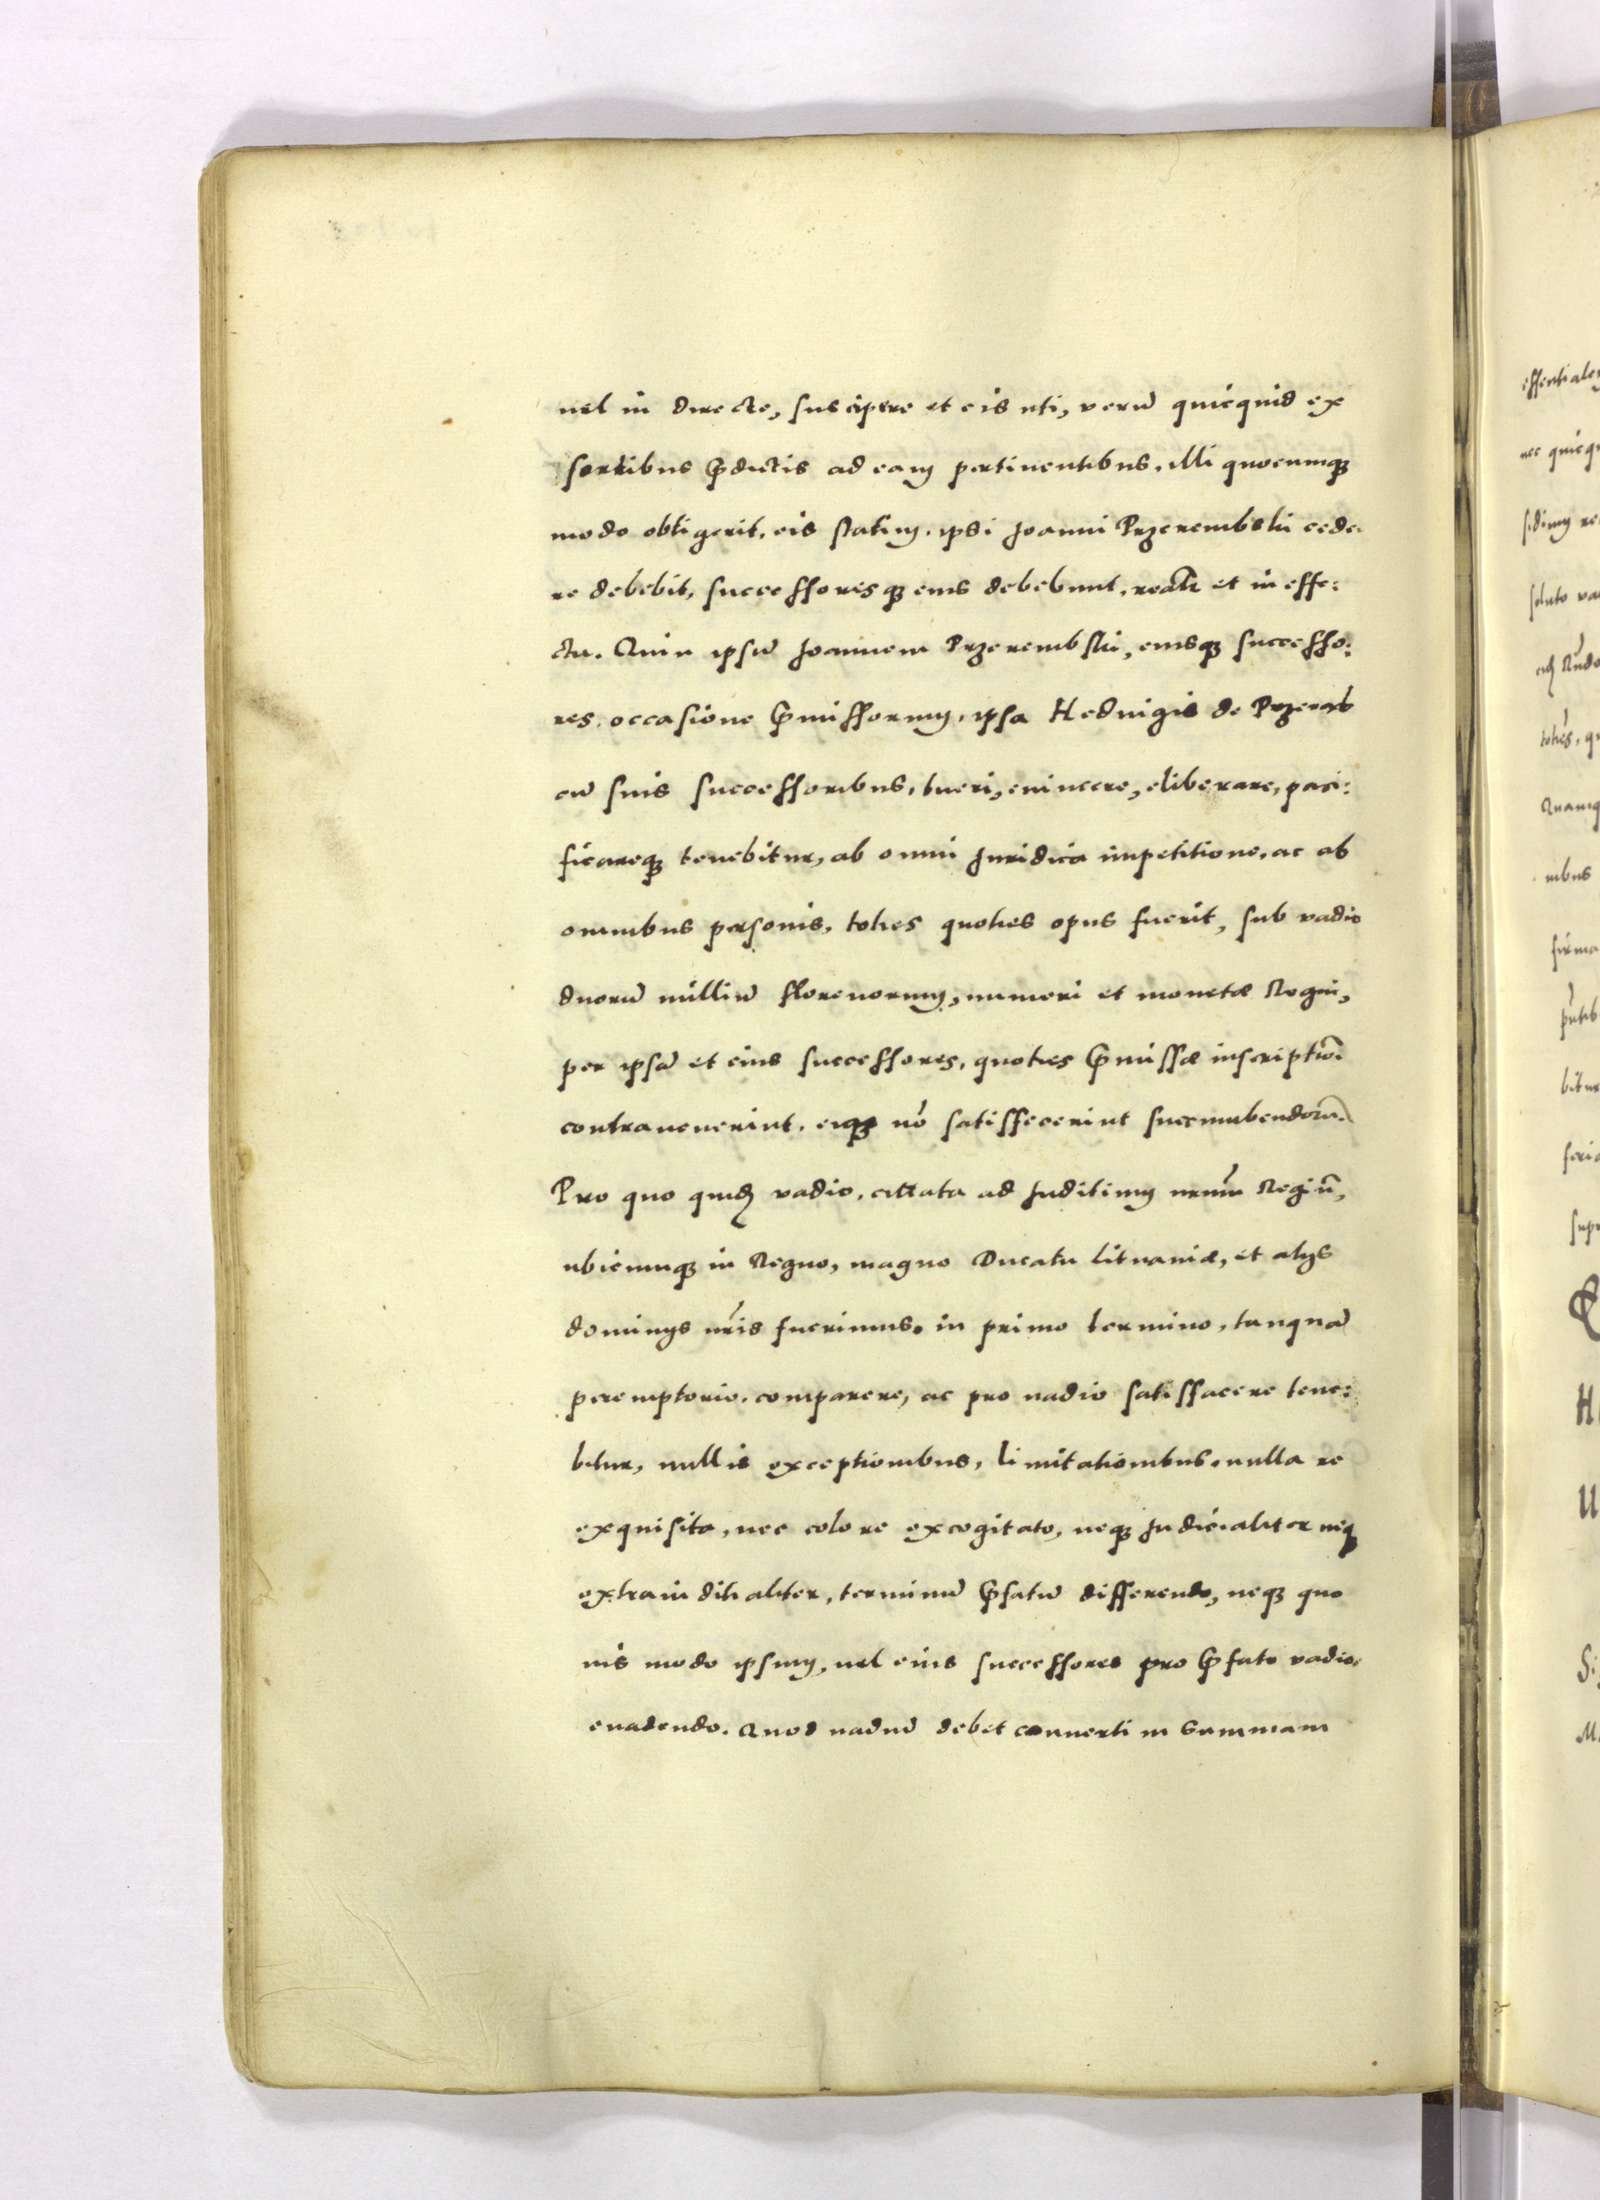 uel in directe, suscipere et eis uti, verũ quicquid ex
sortibus p̃dictis ad eam pertinentibus, illi quocumqꝫ
modo obtigerit, eis statim, ipsi Joanni Przerembski cede
re debebit, successoresqꝫ eius debebunt, realr̃ et in effe:
ctu. Quin ipsũ Joannem Przerembski, eiusqꝫ successo:
res, occasione p̃missorum, ipsa Heduigis de Przeráb
cũ suis successoribus, tueri, euincere, eliberare, paci:
ficareqꝫ tenebitur, ab omni Juridica impetitione, ac ab
omnibus personis, toties quoties opus fuerit, sub vadio
duorũ milliũ florenorum, numeri et monetæ Regni,
per ipsã et eius successores, quoties p̃missæ inscriptioñi
contrauenerint, eiqꝫ nõ satisfecerint succumbendorũ.
Pro quo quidẽ vadio, citata ad Juditium nr̃um Regiũ,
ubicumqꝫ in Regno, magno Ducatu Lituaniæ, et alijs
dominijs nr̃is fuerimus, in primo termino, tanquã
peremptorio, comparere, ac pro uadio satisfacere tene:
bitur, nullis exceptionibus, limitationibus, nulla re
exquisita, nec colore excogitato, neqꝫ Judicialiter neqꝫ
extraiuditialiter, terminũ p̃fatũ differendo, neqꝫ quo
uis modo ipsum, uel eius successores pro p̃fato vadio,
euadendo. Quod uadiũ debet conuerti in summam
essentiale
nec quicq
sidimus re
soluto va
toties, q
Quamq
nibus
firma
bitur
feria
supr
H
U
Si
M